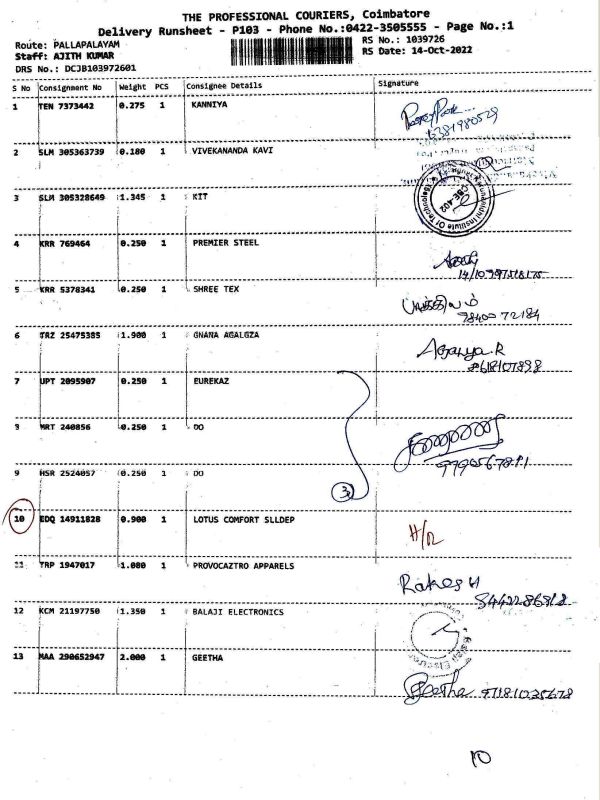 THE PROFESSIONAL COURIERS, Coimbatore
Delivery Runsheet - P103 - Phone No.:0422-3505555 - Page No.:1
Route: PALLAPALAYAM RS No.: 1039726
Staff: AJITH KUMAR RS Date: 14-Oct-2022
DRS No.: DCJB103972601
S No Consignment No Weight PCS Consignee Details Signature
1 TEN 7373442 0.275 1 KANNIYA
2 SLM 305363739 0.180 1 VIVEKANANDA KAVI
3 SLM 305328649 1.345 1 KIT
4 KRR 769464 0.250 1 PREMIER STEEL
5 KRR 5378341 0.250 1 SHREE TEX
98400 72184
6 TRZ 25475385 1.900 1 GNANA AGALGZA
7 UPT 2095907 0.250 1 EUREKAZ
MRT 240856 0.250 1 DO
9 HSR 2524057 0.250 1 DO
3
10 EDQ 14911828 0.900 1 LOTUS COMFORT SLLDEP
11 TRP 1947017 1.080 1 PROVOCAZTRO APPARELS
Rakesh
12 KCM 21197750 1.350 1 BALAJI ELECTRONICS
13 MAA 290652947 2.000 1 GEETHA
Geetha
10